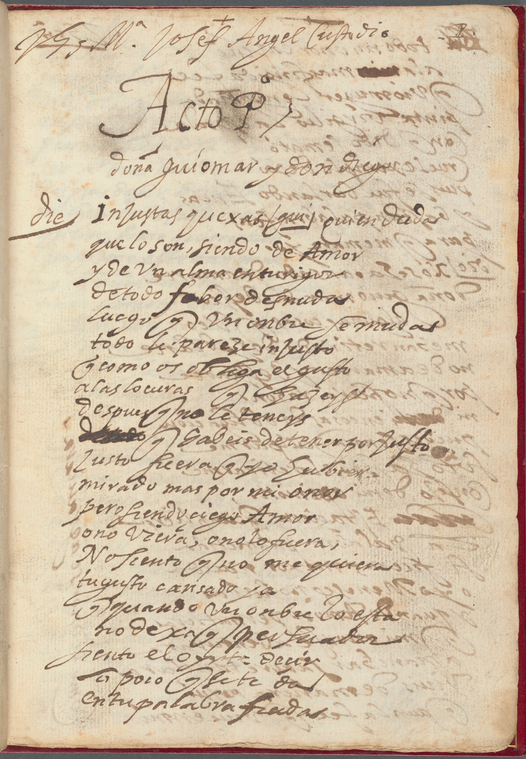 Mª Josef Angel Custodio
Acto Pº
doña guiomar y don diego
die injustas quexas quien duda
que lo son, siendo de Amor
y de un alma en tu rigor
de todo fabor desnuda
luego q un onbre se muda
todo le pareze injusto
como os obliga el gusto
a las locuras q
despues q no le teneys
q de tener por justo
justo fuera q yo hubiera
mirado mas por mi onor
pero siendo ciego Amor
o no viera, o no lo fuera,
No siento q no me quiera
tu gusto cansado ya
q quando un onbre lo esta
no dexa q persuadir
siento el decir
poco q se te da
en tu palabra